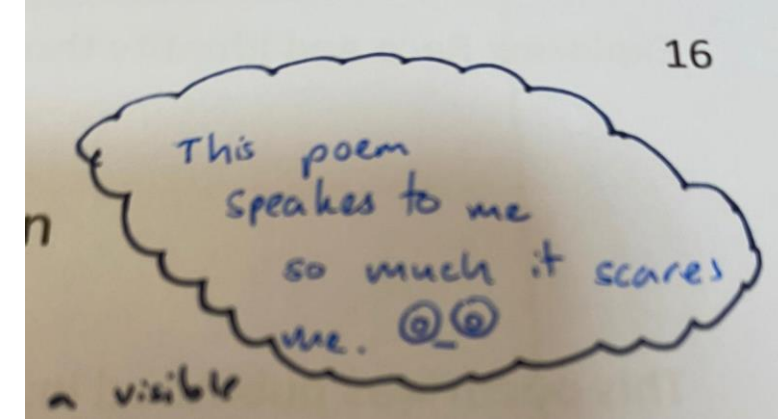 16
This poem
speakes to me
n
so much it scares
me. ◎_◎
a visible